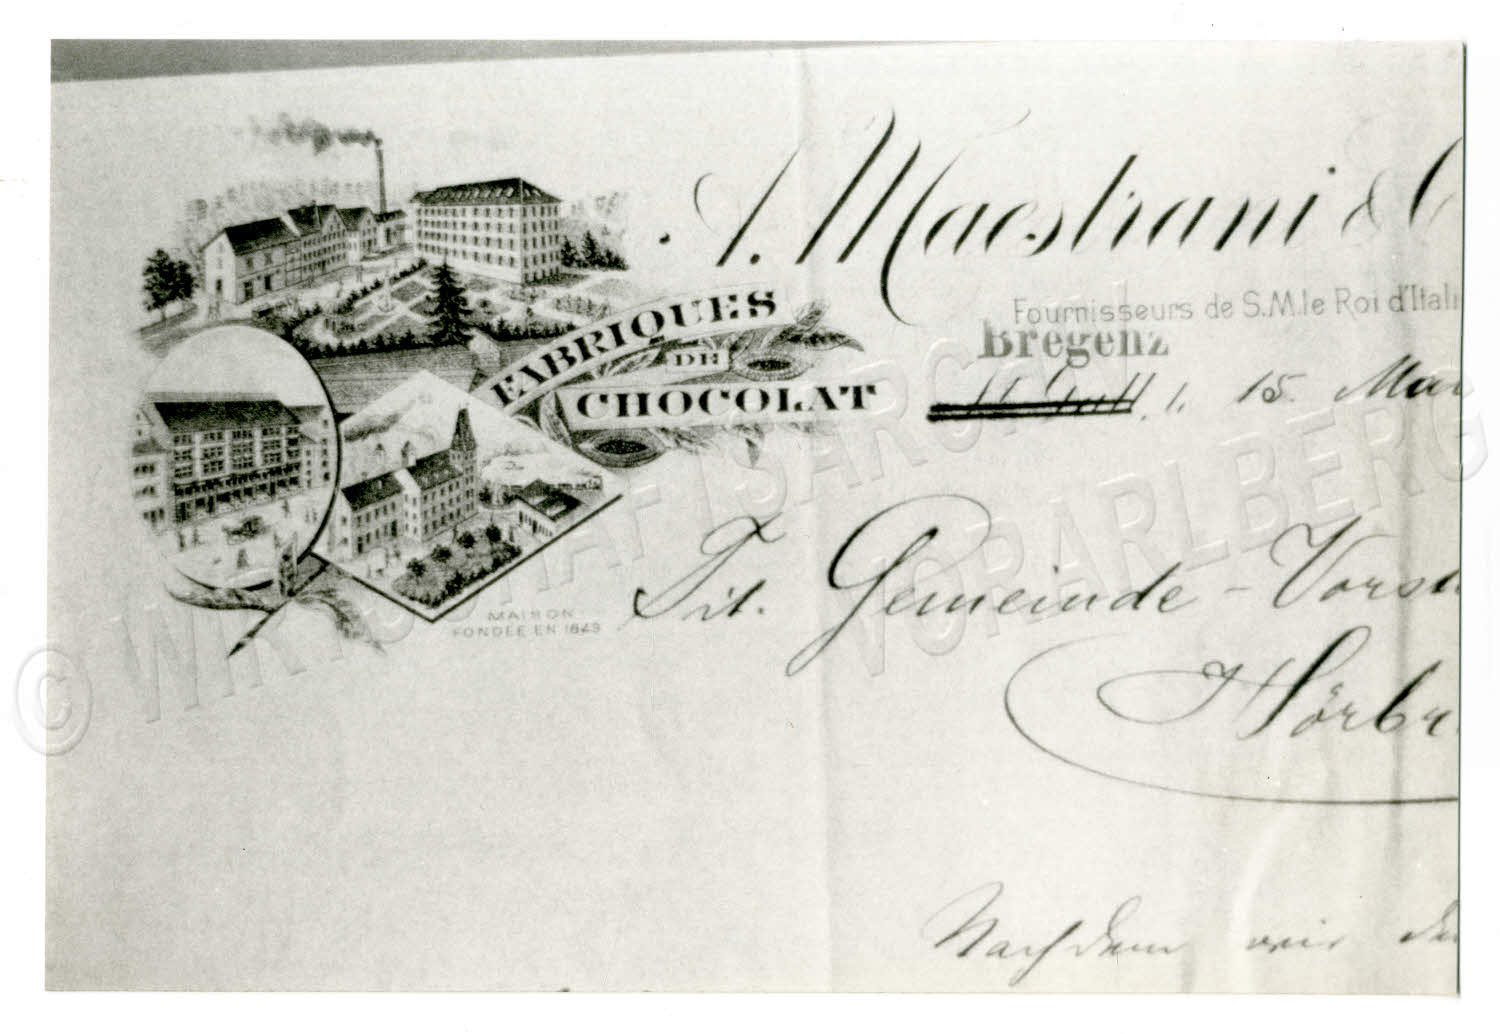 A. Maestrani & C
Fournisseurs de S.M. le Roi d'Itali
FABRIQUES
DE
CHOCOLAT
Bregenz
15. Mai
MAISON
FONDÉE EN 1849
Tit. Gemeinde-Vorst
Hörbr
Nachdem wir
© WIRTSCHAFTSARCHIV
VORARLBERG